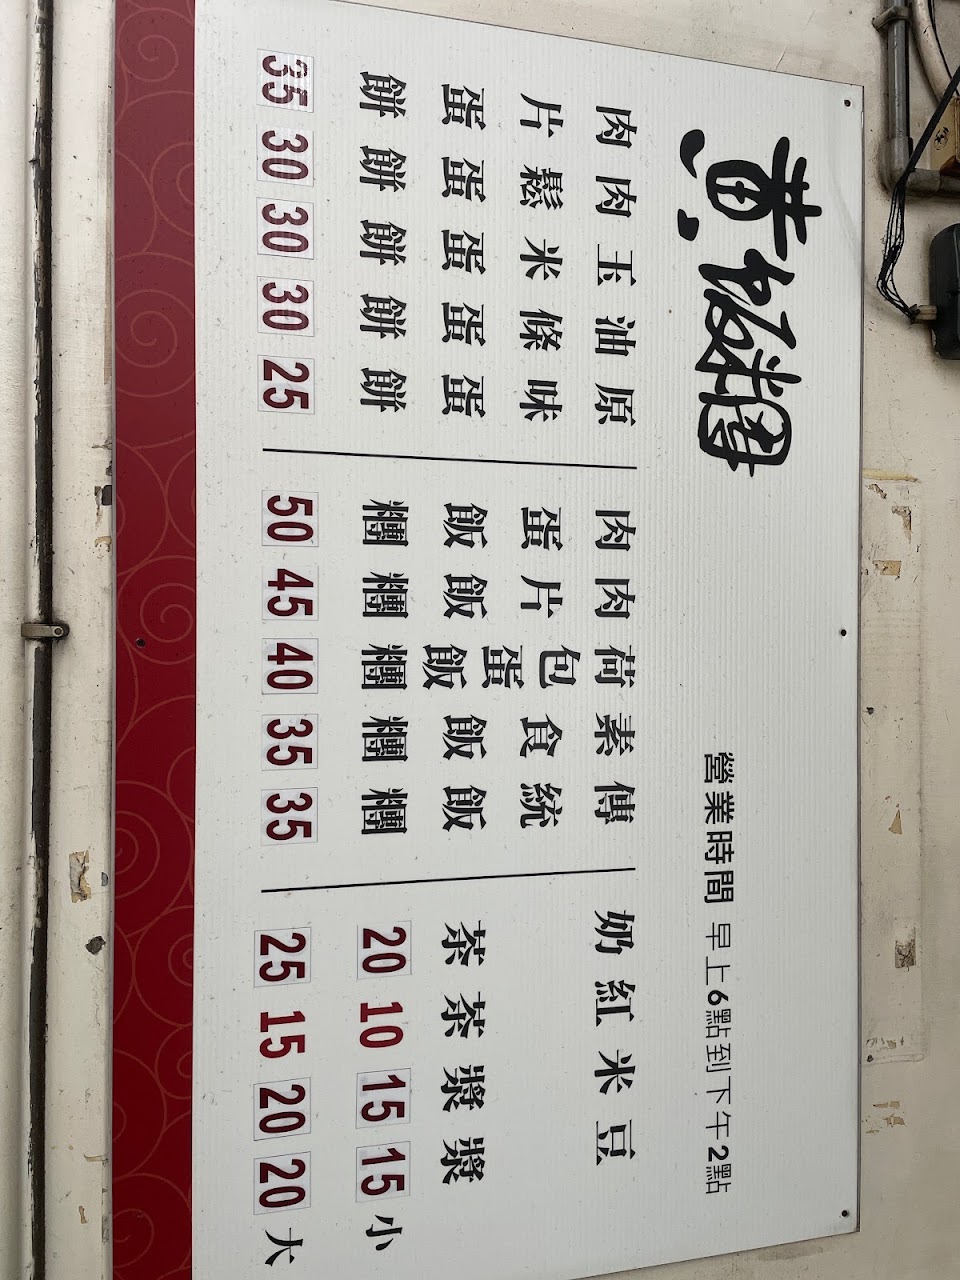 黃飯糰
營業時間 早上6點到下午2點
小 大
豆漿 15 20
米漿 15 20
紅茶 10 15
奶茶 20 25
傳統飯糰 35
素食飯糰 35
荷包蛋飯糰 40
肉片飯糰 45
肉蛋飯糰 50
原味蛋餅 25
油條蛋餅 30
玉米蛋餅 30
肉鬆蛋餅 30
肉片蛋餅 35